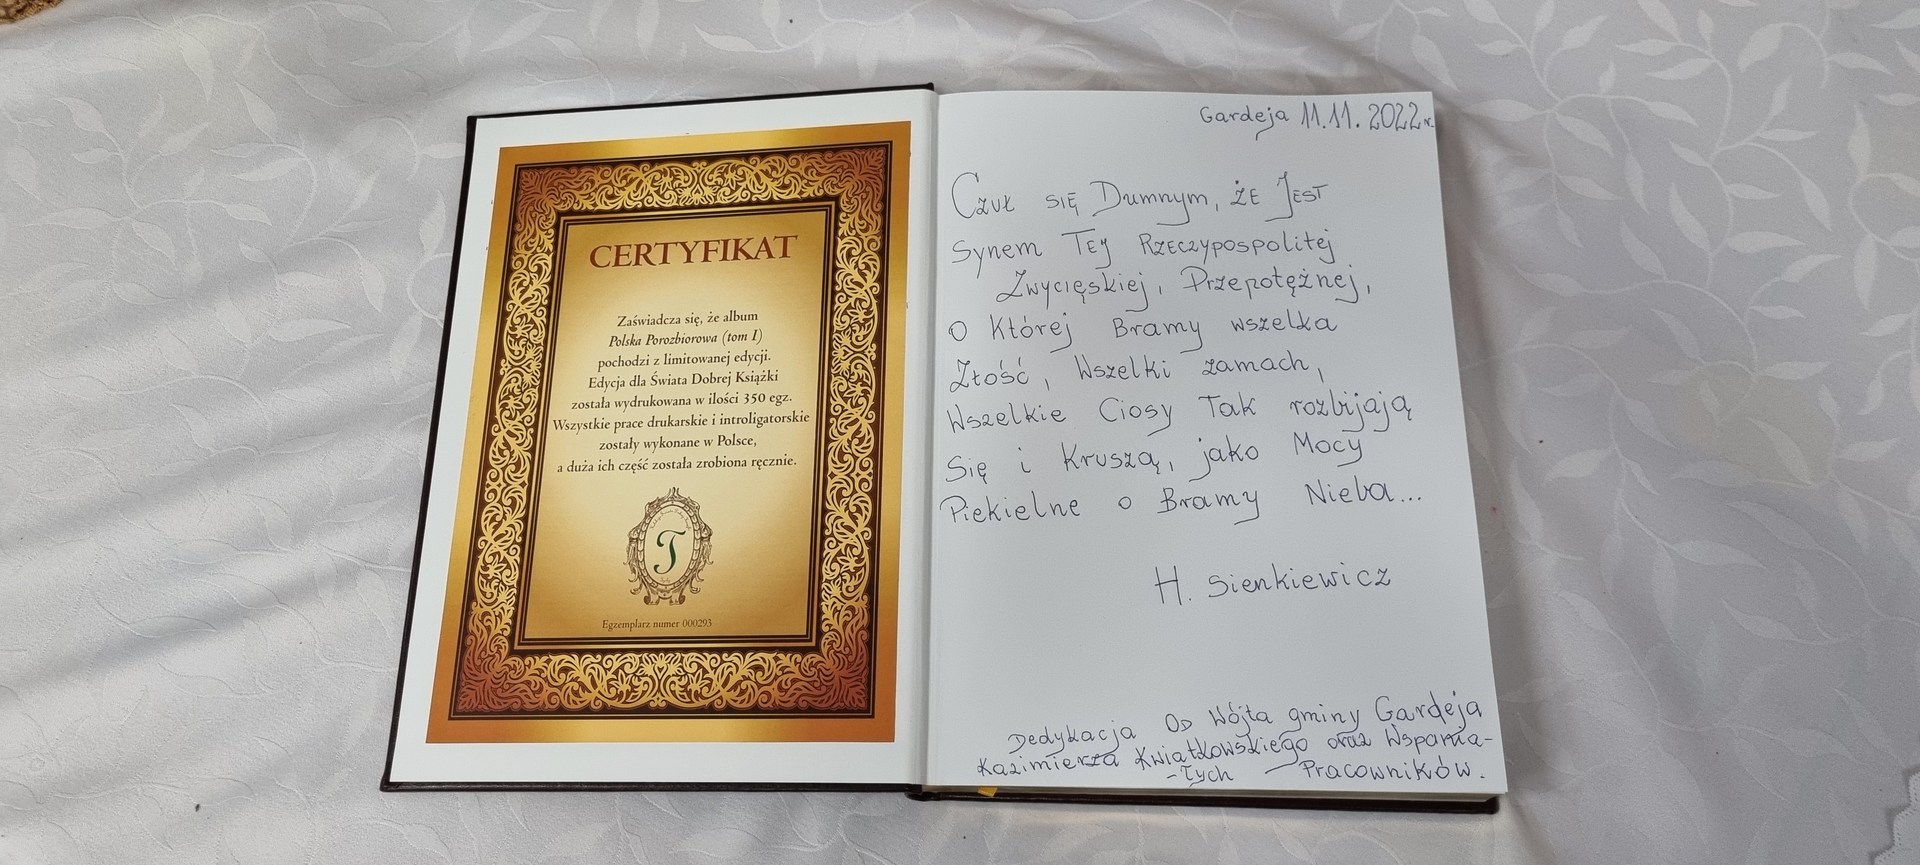 CERTYFIKAT
Zaświadcza się, że album
Polska Porozbiorowa (tom I)
pochodzi z limitowanej edycji.
Edycja dla Świata Dobrej Książki
została wydrukowana w ilości 350 egz.
Wszystkie prace drukarskie i introligatorskie
zostały wykonane w Polsce,
a duża ich część została zrobiona ręcznie.
T
Egzemplarz numer 000293
Gardeja 11.11.2022 r.
Czuł się Dumnym, że Jest
Synem Tej Rzeczypospolitej
Zwycięskiej, Przepotężnej,
o Której Bramy wszelka
Złość, Wszelki zamach,
Wszelkie Ciosy Tak rozbijają
Się i Kruszą, jako Mocy
Piekielne o Bramy Nieba...
H. Sienkiewicz
Dedykacja Od Wójta gminy Gardeja
Kazimierza Kwiatkowskiego oraz Wspania-
-łych Pracowników.